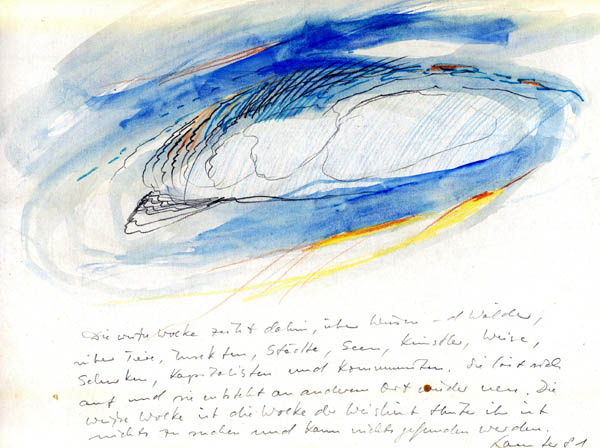 Die weiße Wolke zieht dahin, über Wiesen und Wälder,
über Tiere, Insekten, Städte, Seen, Künstler, Weise,
Schurken, Kapitalisten und Kommunisten. Sie löst sich
auf und sie entsteht an anderem Ort wieder neu. Die
weiße Wolke ist die Wolke der Weisheit ihr ist
nichts zu suchen und kann nichts gefunden werden.
81